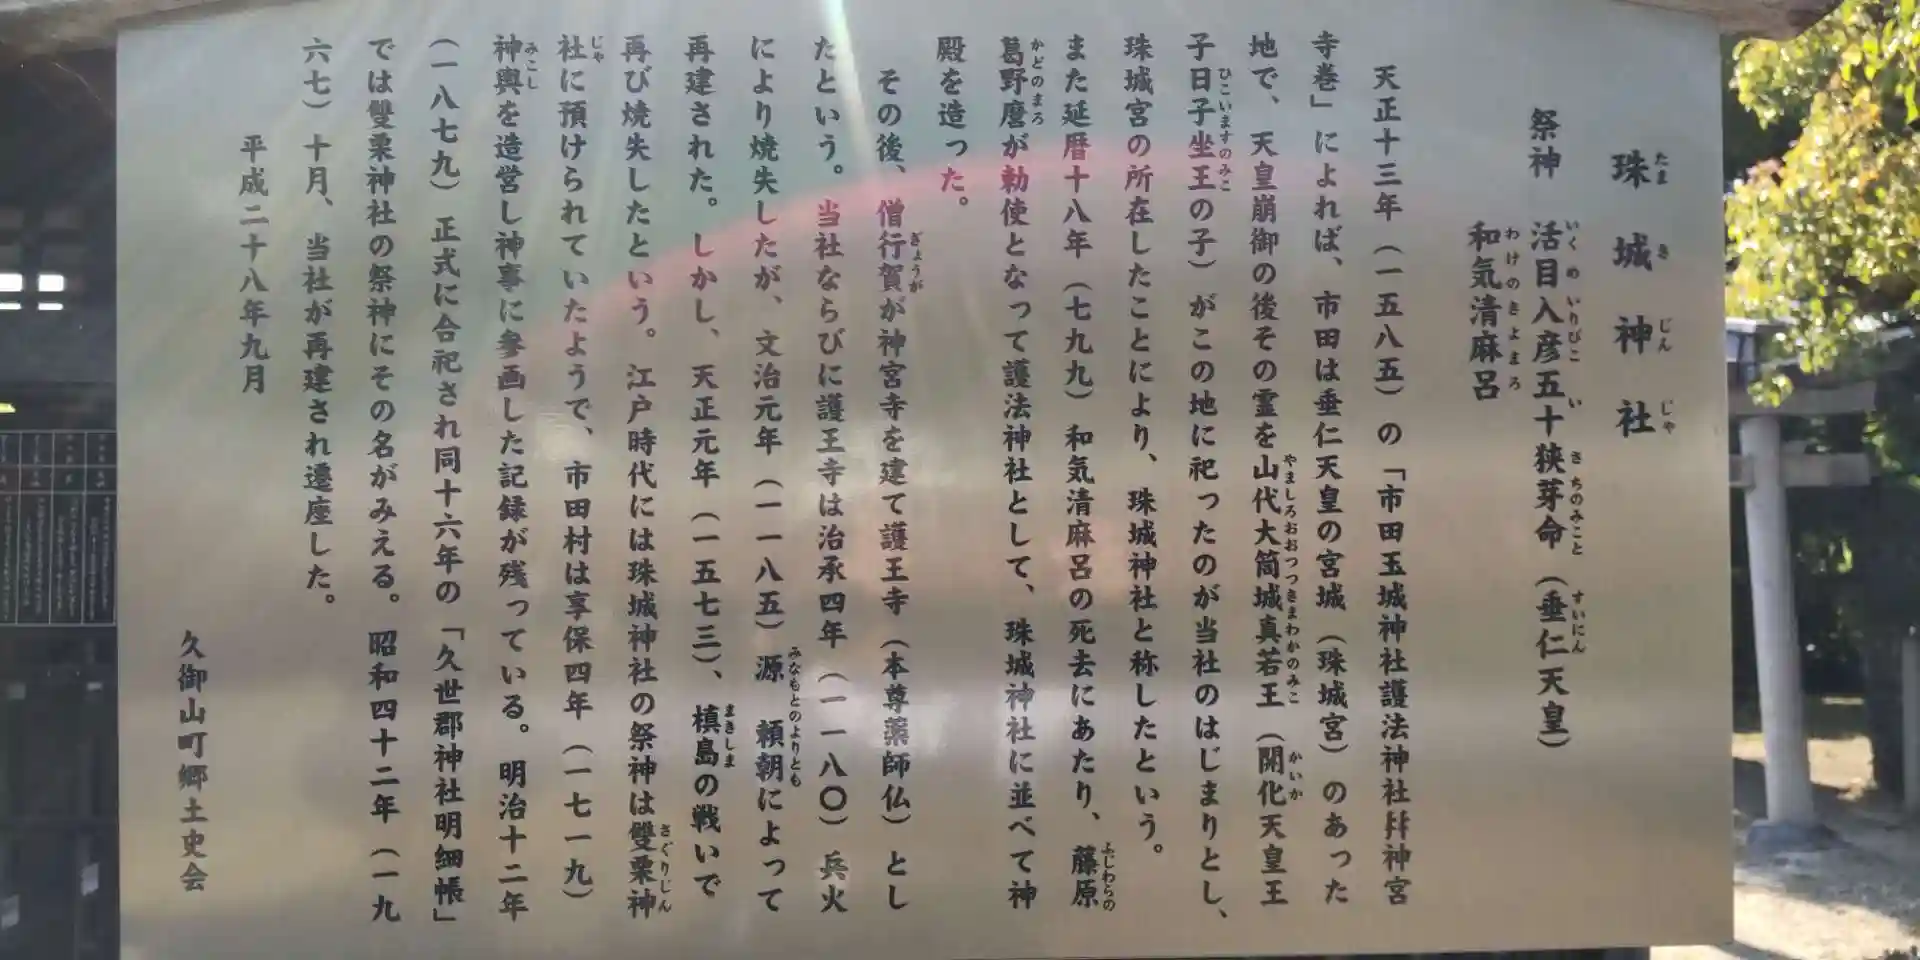 珠城神社
祭神 活目入彦五十狭芽命（垂仁天皇）
和気清麻呂
天正十三年（一五八五）の「市田玉城神社護法神社幷神宮
寺巻」によれば、市田は垂仁天皇の宮城（珠城宮）のあった
地で、天皇崩御の後その霊を山代大筒城真若王（開化天皇王
子日子坐王の子）がこの地に祀ったのが当社のはじまりとし、
珠城宮の所在したことにより、珠城神社と称したという。
また延暦十八年（七九九）和気清麻呂の死去にあたり、藤原
葛野麿が勅使となって護法神社として、珠城神社に並べて神
殿を造った。
その後、僧行賀が神宮寺を建て護王寺（本尊薬師仏）とし
たという。当社ならびに護王寺は治承四年（一一八〇）兵火
により焼失したが、文治元年（一一八五）源頼朝によって
再建された。しかし、天正元年（一五七三）、槙島の戦いで
再び焼失したという。江戸時代には珠城神社の祭神は雙栗神
社に預けられていたようで、市田村は享保四年（一七一九）
神輿を造営し神事に参画した記録が残っている。明治十二年
（一八七九）正式に合祀され同十六年の「久世郡神社明細帳」
では雙栗神社の祭神にその名がみえる。昭和四十二年（一九
六七）十月、当社が再建され遷座した。
平成二十八年九月
久御山町郷土史会